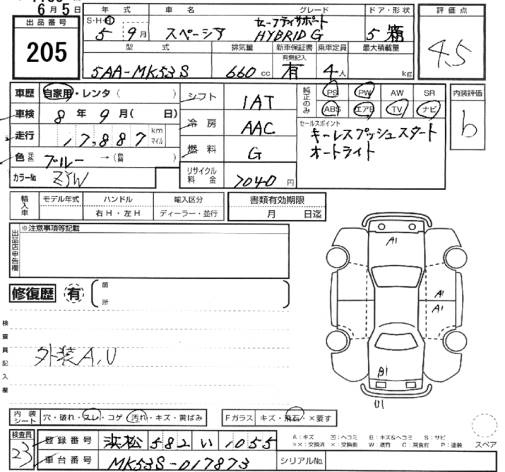 6月5日
出品番号
205
年式 車名 グレード ドア・形状
セーフティサポート
S・H・R
5年9月 スペーシア HYBRID G 5 箱
型式 排気量 新車保証書 乗車定員 最大積載量
有無記入
5AA-MK53S 660cc 有 4人 kg
評価点
4.5
車歴 自家用・レンタ( )
車検 8年9月( 日)
走行 17,887 km マイル
色 ブルー →( )
カラーNo. ZYW
シフト 1AT
冷房 AAC
燃料 G
リサイクル料金 7040円
純正のみ
PS PW AW SR
ABS エアB TV ナビ
セールスポイント
キーレスプッシュスタート
オートライト
内装評価
b
輸入車
モデル年式 ハンドル 輸入区分
右H・左H ディーラー・並行
書類有効期限
月 日迄
※注意事項等記載
修復歴 有 箇所
検査員記入欄
外装A,U
A1
A1
A1
B1
U1
内装シート 穴・破れ・スレ・コゲ・汚れ・キズ・黄ばみ
Fガラス キズ・飛石・×要す
検査員
23
登録番号 浜松 582 い 1055
車台番号 MK53S-017873
シリアルNo.
A:キズ U:ヘコミ B:キズ&ヘコミ S:サビ
スペア